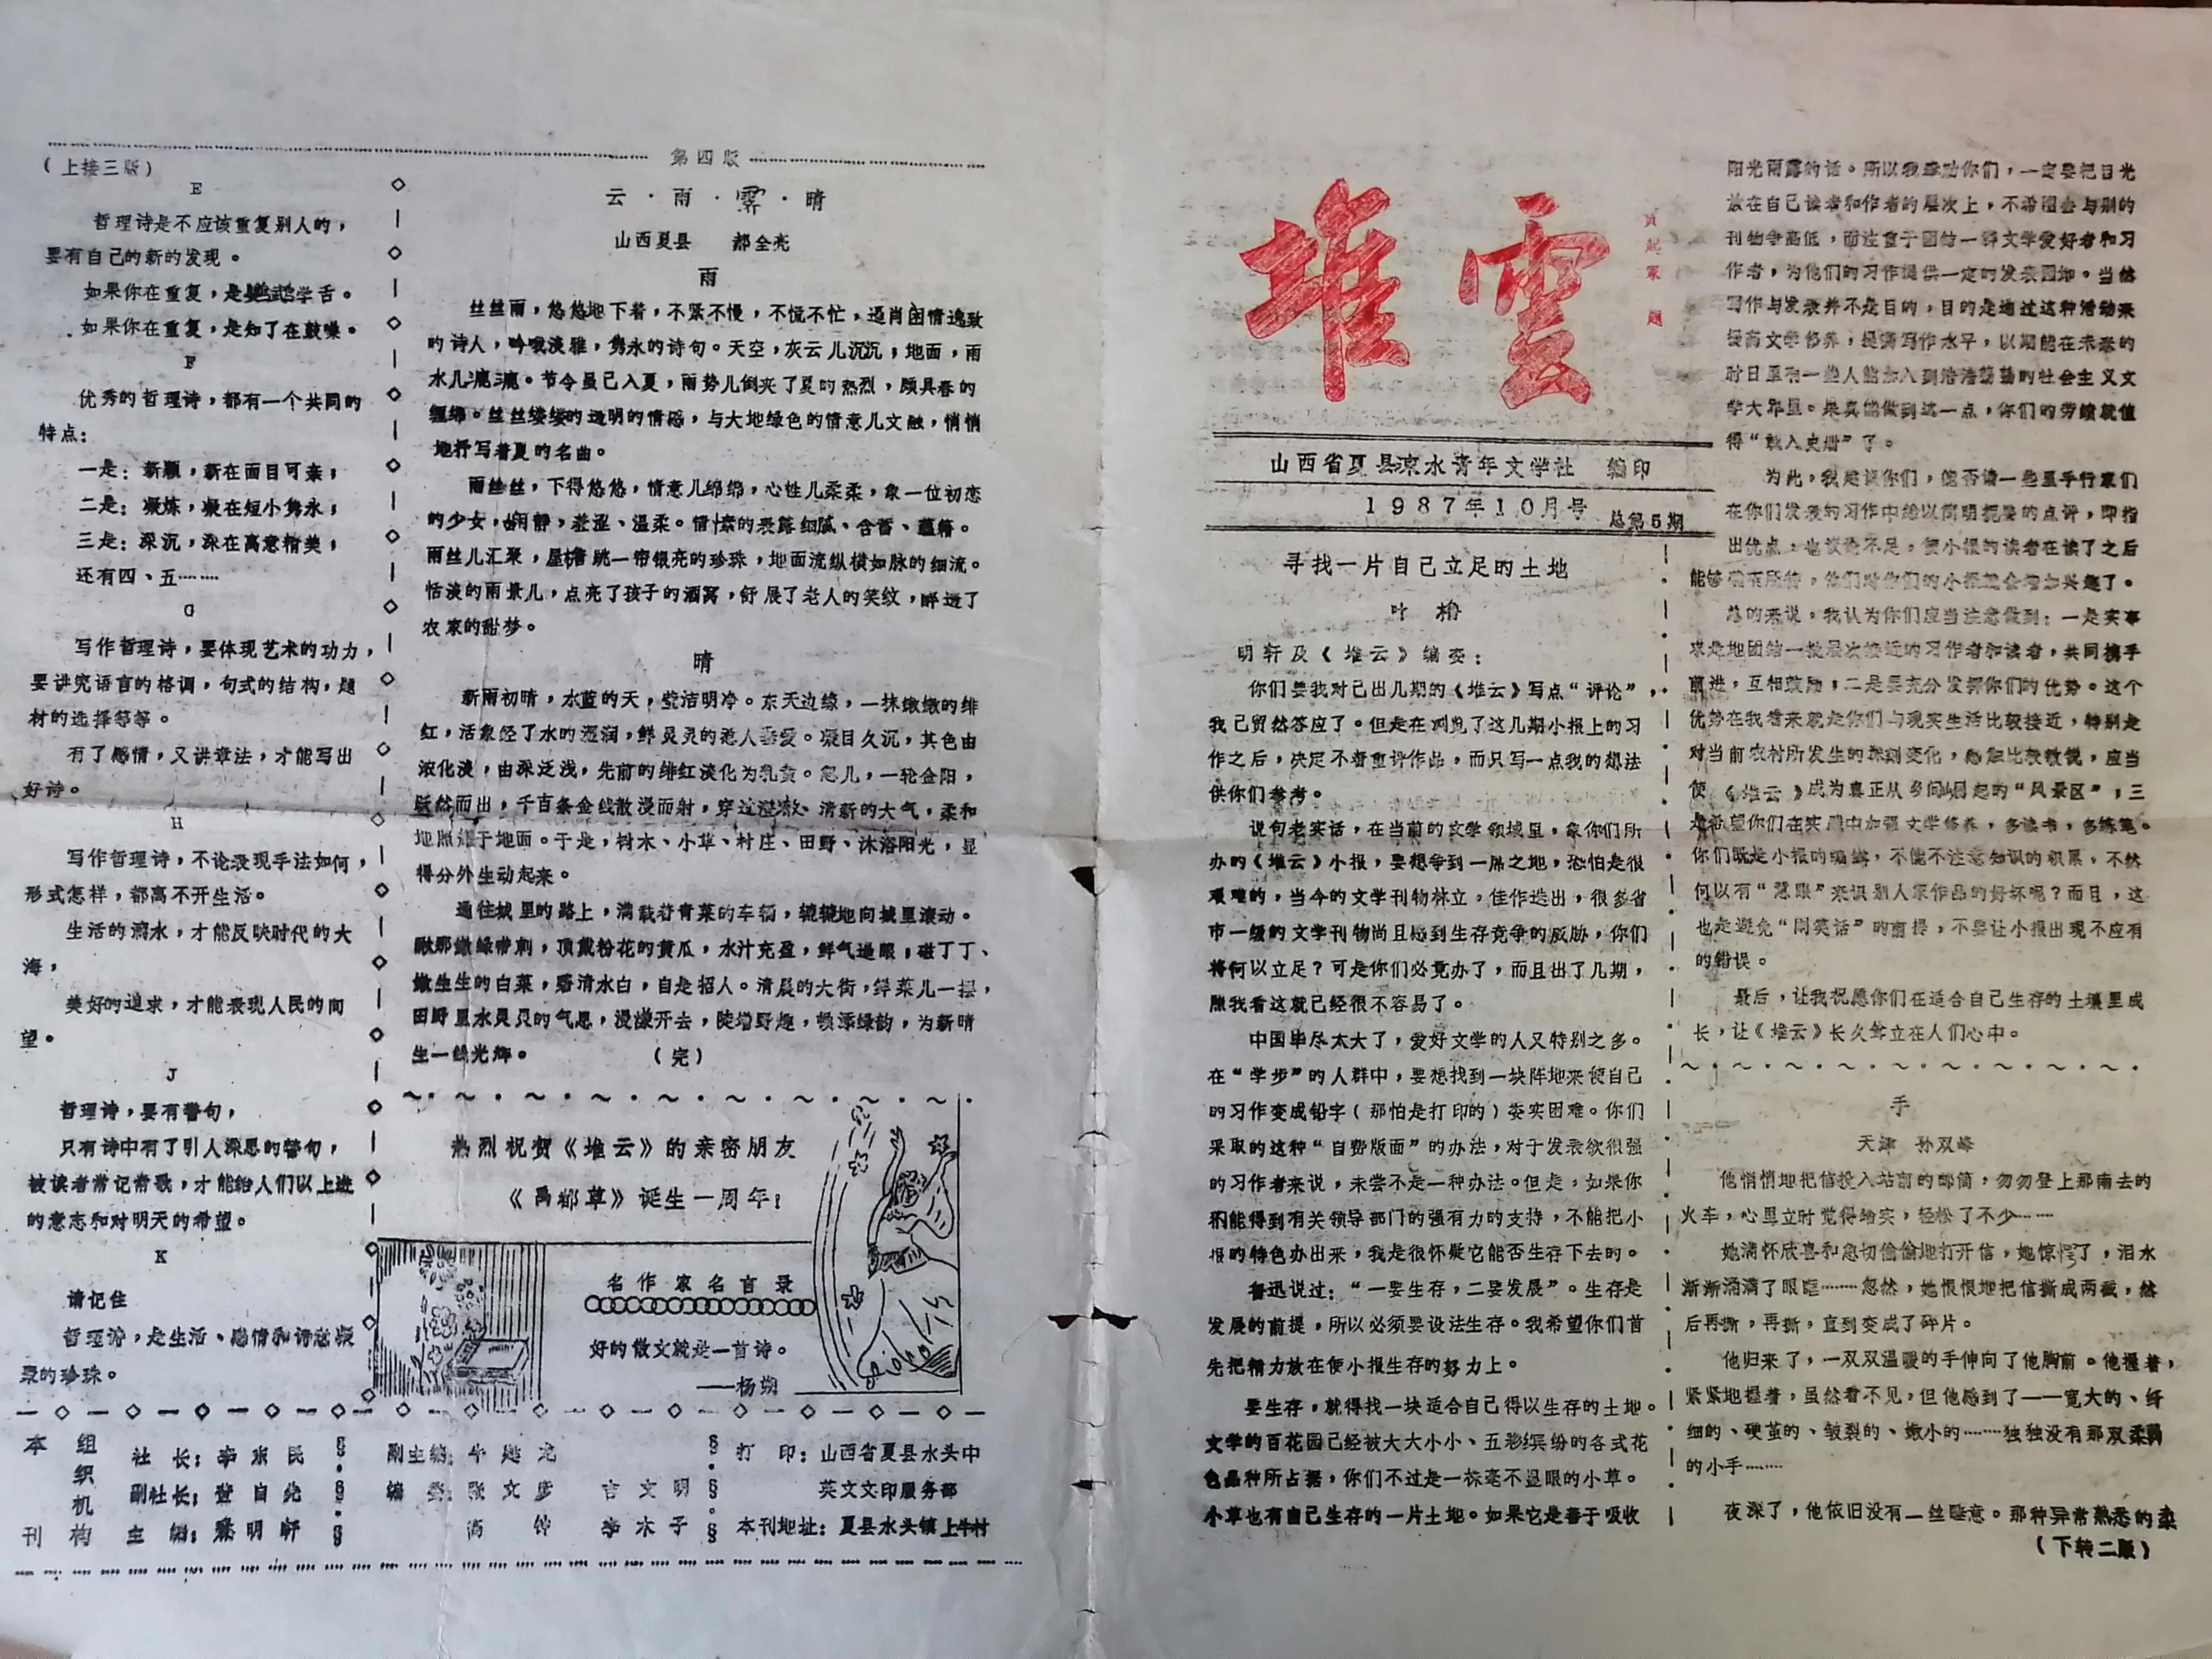 第四版
(上接三版)
E
哲理诗是不应该重复别人的，
要有自己的新的发现。
如果你在重复，是学舌。
如果你在重复，是知了在鼓噪。
F
优秀的哲理诗，都有一个共同的
特点：
一是：新颖，新在面目可亲；
二是：凝炼，凝在短小隽永；
三是：深沉，深在寓意精美；
还有四、五……
G
写作哲理诗，要体现艺术的功力，
要讲究语言的格调，句式的结构，题
材的选择等等。
有了感情，又讲章法，才能写出
好诗。
H
写作哲理诗，不论表现手法如何，
形式怎样，都离不开生活。
生活的滴水，才能反映时代的大
海，
美好的追求，才能表现人民的向
望。
J
哲理诗，要有警句，
只有诗中有了引人深思的警句，
被读者常记常歌，才能给人们以上进
的意志和对明天的希望。
K
请记住
哲理诗，是生活、感情和诗意凝
聚的珍珠。
云·雨·霁·晴
山西夏县 郝全亮
雨
丝丝雨，悠悠地下着，不紧不慢，不慌不忙，逼肖闲情逸致
的诗人，吟哦淡雅，隽永的诗句。天空，灰云儿沉沉；地面，雨
水儿漉漉。节令虽已入夏，雨势儿倒来了夏的热烈，颇具春的
缠绵。丝丝缕缕的透明的情感，与大地绿色的情意儿交融，悄悄
地抒写着夏的名曲。
雨丝丝，下得悠悠，情意儿绵绵，心性儿柔柔，象一位初恋
的少女，闲静，羞涩、温柔。情愫的表露细腻、含蓄、蕴藉。
雨丝儿汇聚，屋檐跳一帘银亮的珍珠，地面流纵横如脉的细流。
恬淡的雨景儿，点亮了孩子的酒窝，舒展了老人的笑纹，醉透了
农家的甜梦。
晴
新雨初晴，水蓝的天，莹洁明净。东天边缘，一抹嫩嫩的绯
红，活象经了水的浸润，鲜灵灵的惹人喜爱。凝目久沉，其色由
浓化淡，由深泛浅，先前的绯红淡化为乳黄。忽儿，一轮金阳，
跃然而出，千百条金线散漫而射，穿过澄澈、清新的大气，柔和
地照耀于地面。于是，树木、小草、村庄、田野、沐浴阳光，显
得分外生动起来。
通往城里的路上，满载着青菜的车辆，辘辘地向城里滚动。
瞅那嫩绿带刺，顶戴粉花的黄瓜，水汁充盈，鲜气逼眼；磁丁丁、
嫩生生的白菜，露清水白，自是招人。清晨的大街，鲜菜儿一摆，
田野里水灵灵的气息，漫漾开去，陡增野趣，顿添绿韵，为新晴
生一线光辉。 (完)
热烈祝贺《堆云》的亲密朋友
《禹都草》诞生一周年！
名作家名言录
好的散文就是一首诗。
——杨朔
本刊组织机构
社 长：李东民
副社长：自
主 编：明轩
副主编：牛
编 委：张文彦 吉文明
高 李木子
打 印：山西省夏县水头中
英文文印服务部
本刊地址：夏县水头镇上牛村
堆雲
贠起家 题
山西省夏县涑水青年文学社 编印
1987年10月号 总第5期
寻找一片自己立足的土地
叶柏
明轩及《堆云》编委：
你们要我对已出几期的《堆云》写点“评论”，
我已贸然答应了。但是在浏览了这几期小报上的习
作之后，决定不着重评作品，而只写一点我的想法
供你们参考。
说句老实话，在当前的文学领域里，象你们所
办的《堆云》小报，要想争到一席之地，恐怕是很
艰难的，当今的文学刊物林立，佳作迭出，很多省
市一级的文学刊物尚且感到生存竞争的威胁，你们
将何以立足？可是你们必竟办了，而且出了几期，
照我看这就已经很不容易了。
中国毕尽太大了，爱好文学的人又特别之多。
在“学步”的人群中，要想找到一块阵地来使自己
的习作变成铅字(那怕是打印的)委实困难。你们
采取的这种“自费版面”的办法，对于发表欲很强
的习作者来说，未尝不是一种办法。但是，如果你
不能得到有关领导部门的强有力的支持，不能把小
报的特色办出来，我是很怀疑它能否生存下去的。
鲁迅说过：“一要生存，二要发展”。生存是
发展的前提，所以必须要设法生存。我希望你们首
先把精力放在使小报生存的努力上。
要生存，就得找一块适合自己得以生存的土地。
文学的百花园已经被大大小小、五彩缤纷的各式花
色品种所占据，你们不过是一株毫不显眼的小草。
小草也有自己生存的一片土地。如果它是善于吸收
阳光雨露的话。所以我奉劝你们，一定要把目光
放在自己读者和作者的层次上，不希图去与别的
刊物争高低，而注重于团结一群文学爱好者和习
作者，为他们的习作提供一定的发表园地。当然
写作与发表并不是目的，目的是通过这种活动来
提高文学修养，提高写作水平，以期能在未来的
时日里有一些人能加入到浩浩荡荡的社会主义文
学大军里。果真能做到这一点，你们的劳绩就值
得“载入史册”了。
为此，我建议你们，能否请一些里手行家们
在你们发表的习作中给以简明扼要的点评，即指
出优点，也议论不足，使小报的读者在读了之后
能够稍有所得，他们对你们的小报就会增加兴趣了。
总的来说，我认为你们应当注意做到：一是实事
求是地团结一批层次接近的习作者和读者，共同携手
前进，互相鼓励；二是要充分发挥你们的优势。这个
优势在我看来就是你们与现实生活比较接近，特别是
对当前农村所发生的深刻变化，感知比较敏锐，应当
使《堆云》成为真正从乡间崛起的“风景区”，三
是希望你们在实践中加强文学修养，多读书，多练笔。
你们既是小报的编辑，不能不注意知识的积累，不然
何以有“慧眼”来识别人家作品的好坏呢？而且，这
也是避免“闹笑话”的前提，不要让小报出现不应有
的错误。
最后，让我祝愿你们在适合自己生存的土壤里成
长，让《堆云》长久耸立在人们心中。
手
天津 孙双峰
他悄悄地把信投入站前的邮筒，匆匆登上那南去的
火车，心里立时觉得踏实，轻松了不少……
她满怀欣喜和急切偷偷地打开信，她惊愕了，泪水
渐渐涌满了眼眶……忽然，她恨恨地把信撕成两截，然
后再撕，再撕，直到变成了碎片。
他归来了，一双双温暖的手伸向了他胸前。他握着，
紧紧地握着，虽然看不见，但他感到了——宽大的、纤
细的、硬茧的、皱裂的、嫩小的……独独没有那双柔腻
的小手……
夜深了，他依旧没有一丝睡意。那种异常熟悉的柔
(下转二版)